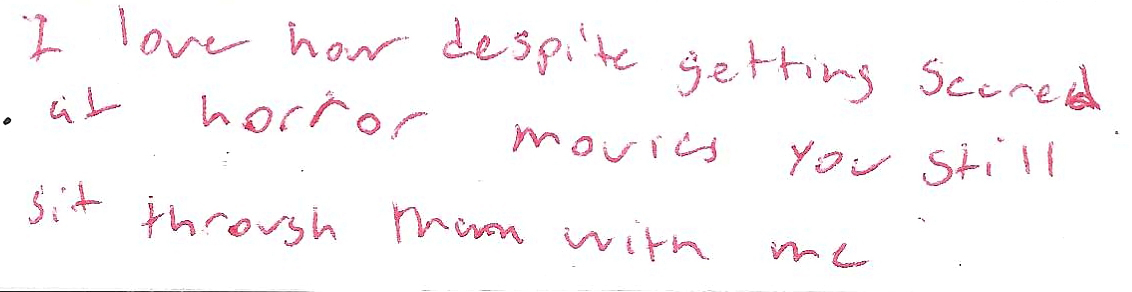 I love how despite getting scared
at horror movies you still
sit through them with me